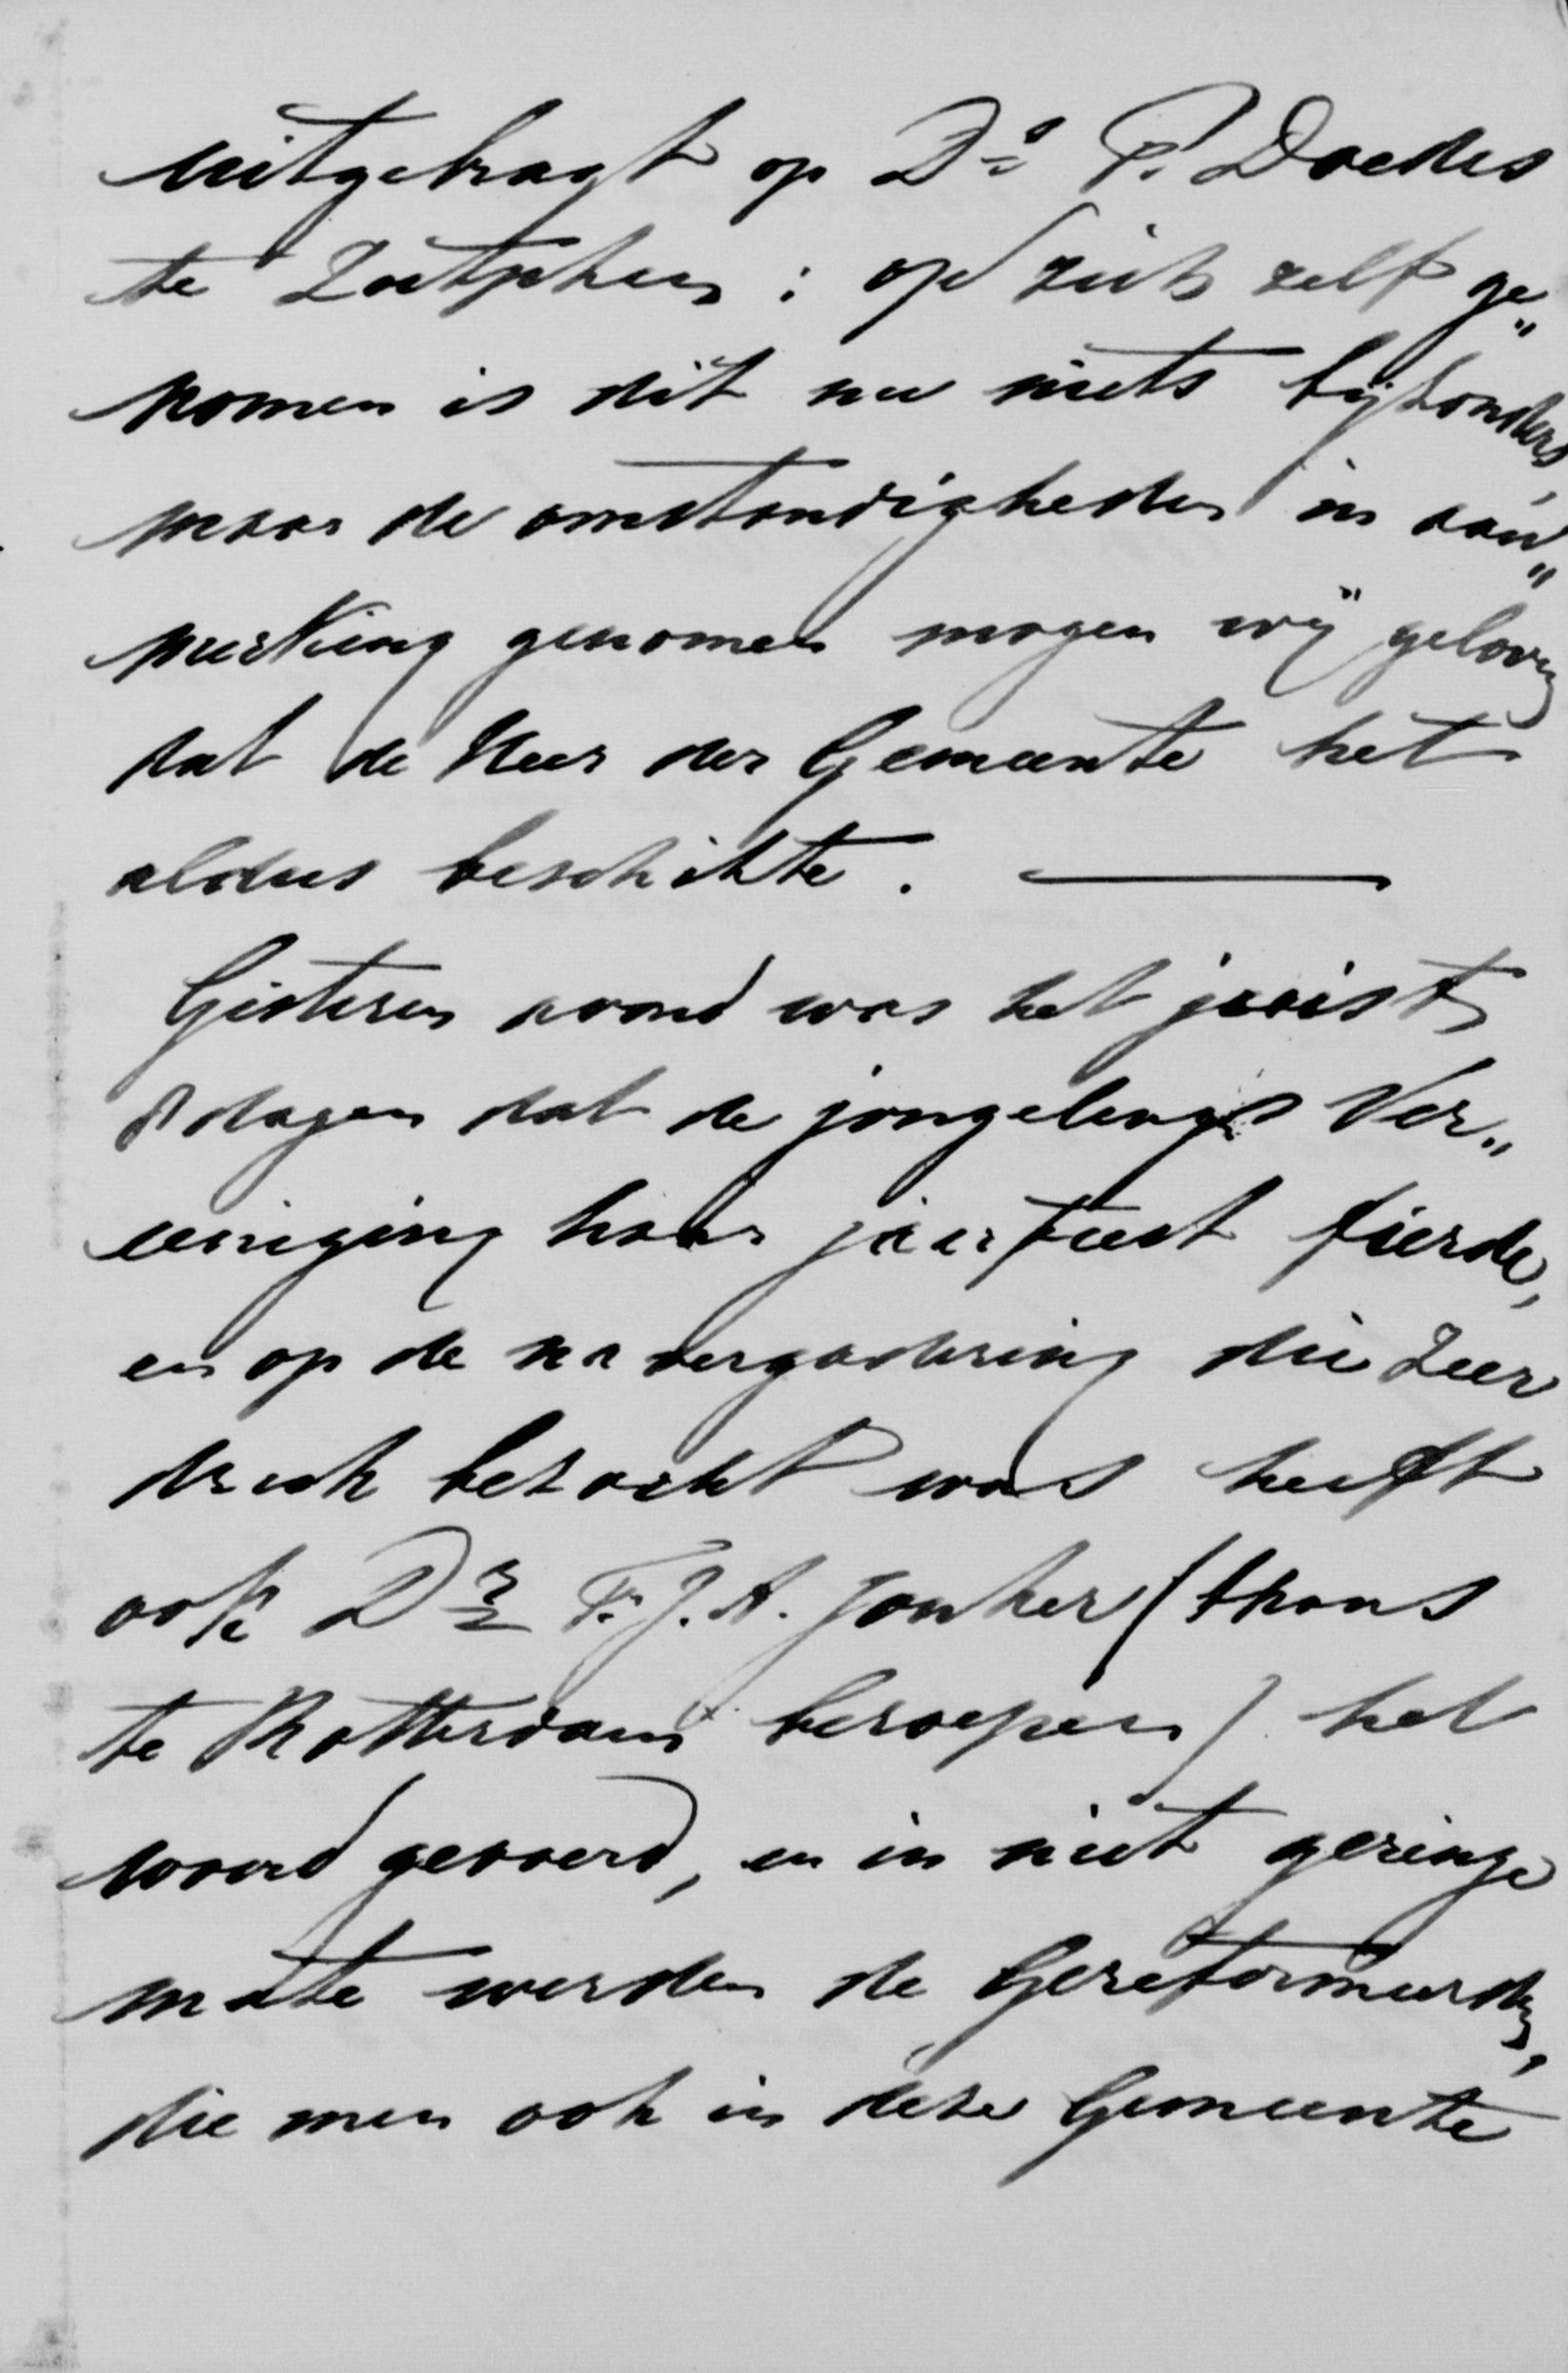 uitgebragt op Ds P. Doedes
te Zutphen; op zich zelf ge„
nomen is dit nu niets bijzonders,
maar de omstandigheden in aan„
merking genomen mogen wij geloven
dat de Heer der Gemeente het
aldus beschikte. —
Gisteren avond was het juist
8 dagen dat de jongelings Ver„
eeniging haar jaarfeest fierde,
en op de na vergadering die Zeer
druk bezocht was heeft
ook Dr F.J.A. Jonker (thans
te Rotterdam beroepen) het
woord gevoerd, en in niet geringe
mate werden de Gereformeerden,
die men ook in deze Gemeente